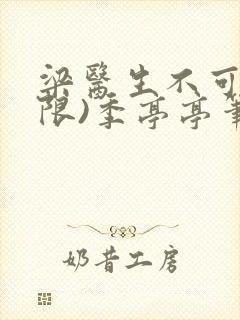 梁醫生不可
限)季亭亭筆
奶昔工房